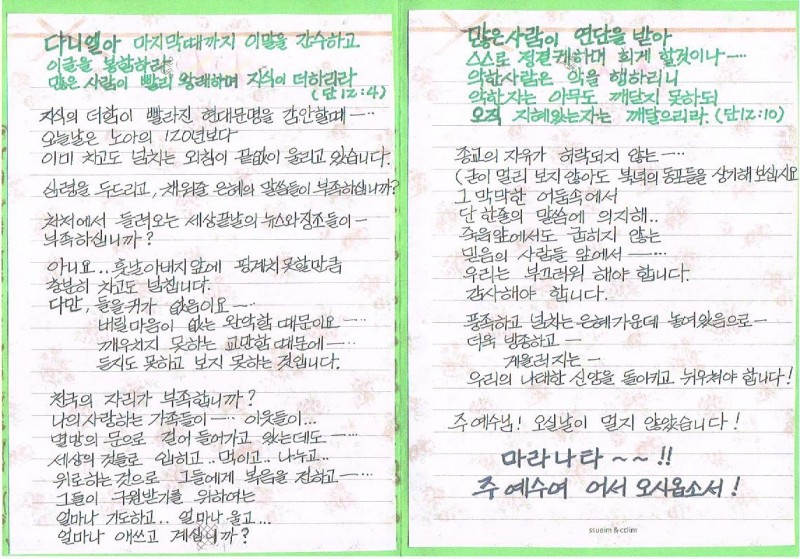 다니엘아 마지막때까지 이말을 간수하고
이글을 봉함하라
많은 사람이 빨리 왕래하며 지식이 더하리라
(단12:4)
지식의 더함이 빨라진 현대문명을 감안할때 ─ ····
오늘날은 노아의 120년보다
이미 차고도 넘치는 외침이 끝없이 울리고 있습니다.
심령을 두드리고, 채워줄 은혜의 말씀들이 부족하십니까?
처처에서 들려오는 세상끝날의 뉴스와징조들이 ─
부족하십니까?
아니요.. 훗날아버지앞에 핑계치못할만큼
충분히 차고도 넘칩니다.
다만, 들을귀가 없음이요 ─ ····
버릴마음이 없는 완악함 때문이요 ─ ····
깨우치지 못하는 교만함때문에 ─ ····
듣지도 못하고 보지 못하는 것입니다.
천국의 자리가 부족합니까?
나의사랑하는 가족들이 ─ ···· 이웃들이...
멸망의 문으로 걸어 들어가고 있는데도 ─ ····
세상의 것들로 입히고.. 먹이고.. 나누고...
위로하는 것으로 그들에게 복음을 전하고 ─ ····
그들이 구원받기를 위하여는
얼마나 기도하고.. 얼마나 울고...
얼마나 애쓰고 계십니까?
많은사람이 연단을 받아
스스로 정결케하며 희게 할것이나 ─ ····
악한사람은 악을 행하리니
악한자는 아무도 깨닫지 못하되
오직 지혜있는자는 깨달으리라. (단12:10)
종교의 자유가 허락되지 않는 ─ ····
(굳이 멀리 보지않아도 북녘의 동포들을 상기해 보십시요
그 막막한 어둠속에서
단 한줄의 말씀에 의지해..
죽음앞에서도 굽히지 않는
믿음의 사람들 앞에서 ─ ····
우리는 부끄러워 해야 합니다.
감사해야 합니다.
풍족하고 넘치는 은혜가운데 놓여있음으로 ─
더욱 방종하고 ─
게을러지는 ─
우리의 나태한 신앙을 돌아키고 뉘우쳐야 합니다!
주 예수님! 오실날이 멀지 않았습니다!
마라나타 ~ ~ !!
주 예수여 어서 오시옵소서!
ssueim & cclim